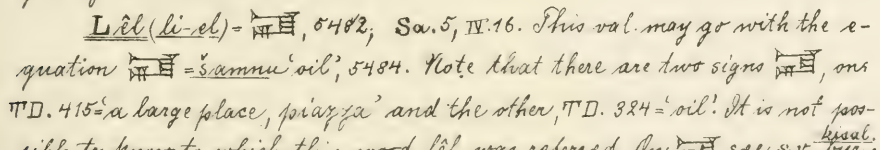 Lêl (li-el) = 𒉌, 5482, Sa. 5, IV. 16. This val. may go with the e-
quation = šamnu 'oil', 5484. Note that there are two signs , one
TD. 415 = 'a large place, piazza' and the other, TD. 324 = 'oil'. It is not pos-
sible to know to which this word lêl was referred. On see s.v. kisal.